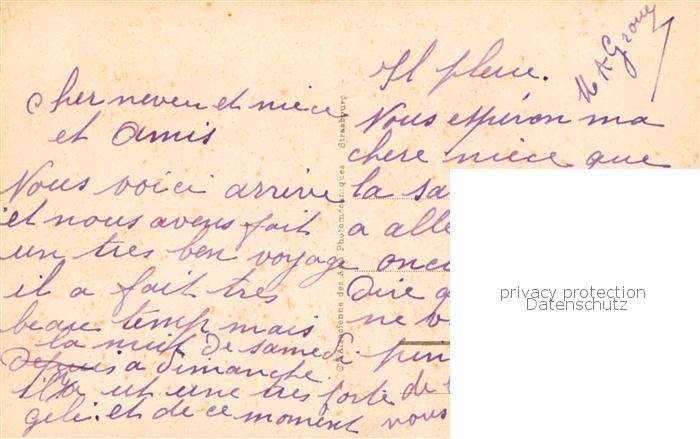 Cher neveu et niece
et Amis
Nous voici arrive
et nous avons fait
un tres bon voyage
il a fait tres
beau temp mais
la nuit de samedi
a dimanche
il a ut une tres forte
gelé. et de ce moment nous
Il pleu.
Nous espéron ma
chere niece que
la sa
a allé
onco
Dire q
ne v
pin
de
Cie Alsacienne des Arts Photomécaniques - Strasbourg
privacy protection
Datenschutz